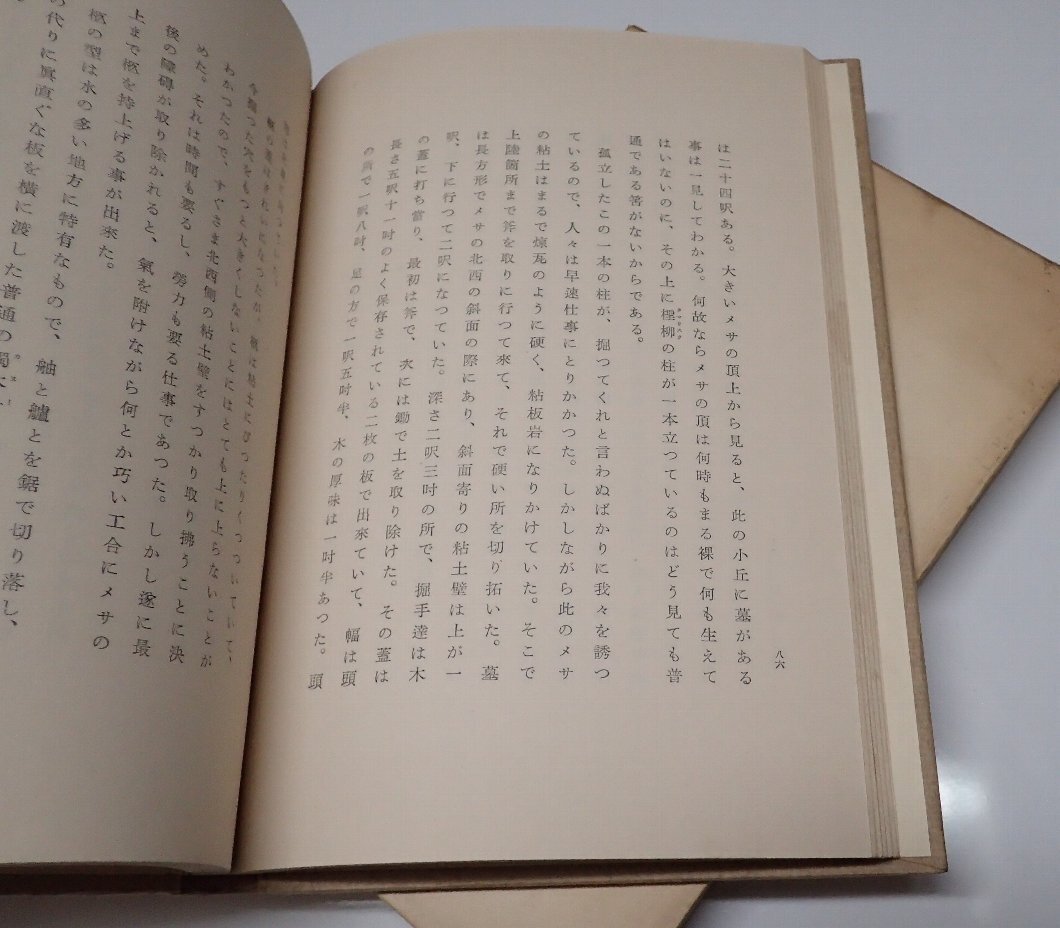 八六
は二十四呎ある。大きいメサの頂上から見ると、此の小丘に墓がある
事は一見してわかる。何故ならメサの頂は何時もまる裸で何も生えて
はいないのに、その上に檉柳の柱が一本立つているのはどう見ても普
タマリスク
通である筈がないからである。
孤立したこの一本の柱が、掘つてくれと言わぬばかりに我々を誘つ
ているので、人々は早速仕事にとりかかつた。しかしながら此のメサ
の粘土はまるで煉瓦のように硬く、粘板岩になりかけていた。そこで
上陸箇所まで斧を取りに行つて來て、それで硬い所を切り拓いた。墓
は長方形でメサの北西の斜面の際にあり、斜面寄りの粘土壁は上が一
呎、下に行つて二呎になつていた。深さ二呎三吋の所で、掘手達は木
の蓋に打ち當り、最初は斧で、次には鋤で土を取り除けた。その蓋は
長さ五呎十一吋のよく保存されている二枚の板で出來ていて、幅は頭
の所で一呎八吋、足の方で一呎五吋半、木の厚味は一吋半あつた。頭
今掘つた穴をもつと大きくしないことにはとても上に上らないことが
わかつたので、すぐさま北西側の粘土壁をすつかり取り拂うことに決
めた。それは時間も要るし、勞力も要る仕事であつた。しかし遂に最
後の障碍が取り除かれると、氣を附けながら何とか巧い工合にメサの
上まで柩を持上げる事が出來た。
柩の型は水の多い地方に特有なもので、舳と艫とを鋸で切り落し、
の代りに眞直ぐな板を橫に渡した普通の獨木